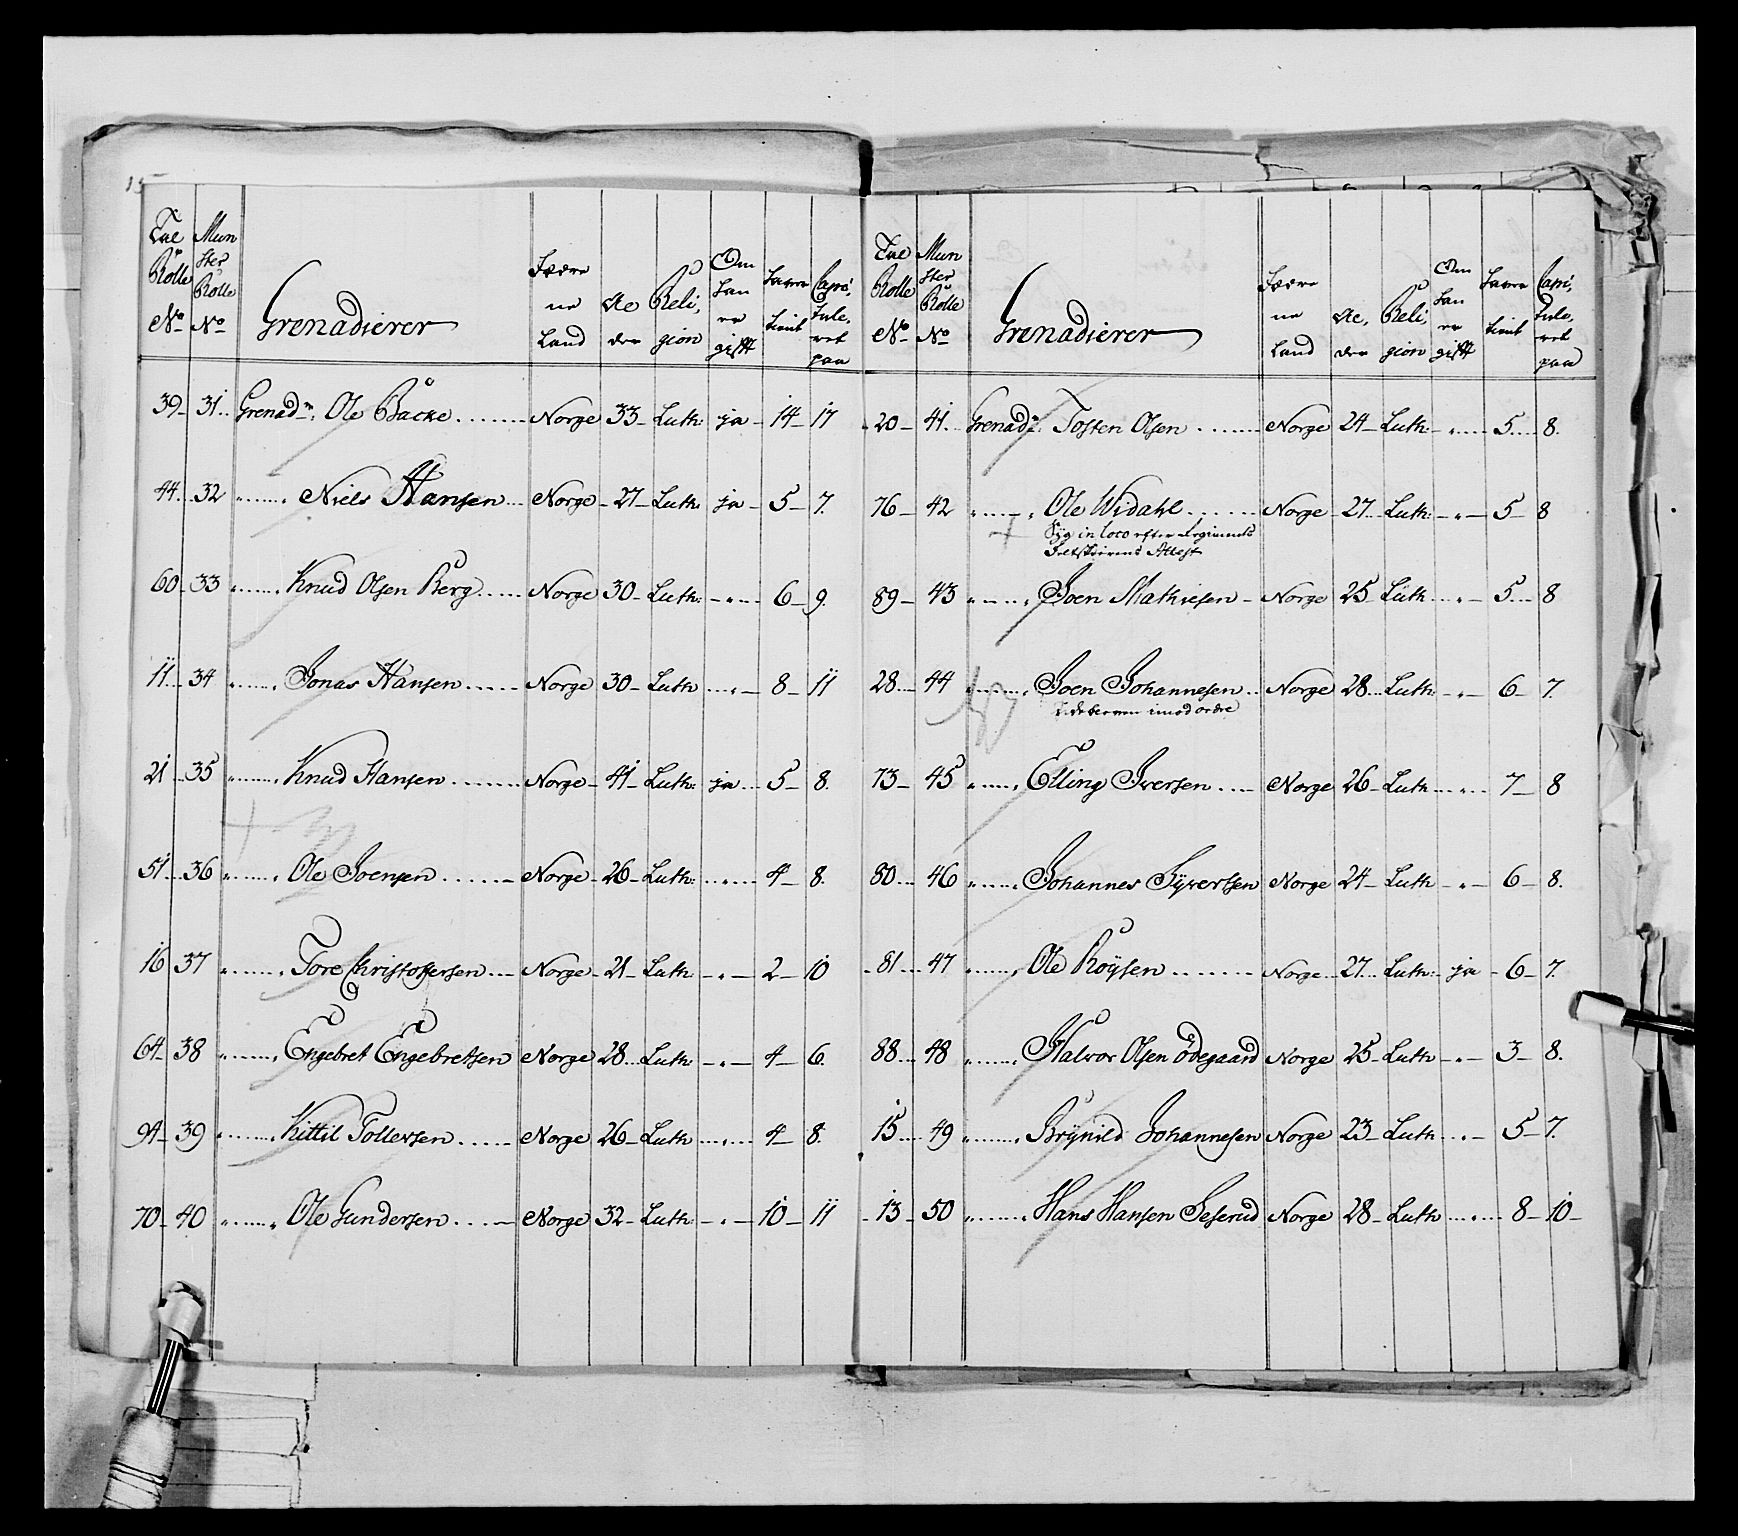 15
Tal Rolle No Mun ster Rolle No Grenadierer Fædre ne Land Al der Reli, gion Om han er gift Hav tient Capi, tule, ret paa
39 31 Grenad: Ole Backe Norge 33 Luth: ja 14 17
44 32 " Niels Hansen Norge 27 Luth: ja 5 7.
60 33 " Knud Olsen Berg Norge 30 Luth: " 6 9.
11 34 " Jonas Hansen Norge 30 Luth " 8 11
21 35 " Knud Hansen Norge 41 Luth: ja 5 8.
51 36 " Ole Joensen Norge 26 Luth: " 4 8.
16 37 " Tore Christophersen Norge 21 Luth " 2 10
64 38 " Engebret Engebretsen Norge 28 Luth: " 4 6.
94 39 " Kittil Tollersen Norge 26 Luth " 4 8.
70 40 " Ole Gundersen Norge 32 Luth " 10 11
Tal Rolle No Mun ster Rolle No Grenadierer Fædre ne Land Al, der Reli, gion Om han er gift Hav tient Capi, tule, ret paa
20 41 Grenad: Tosten Olsen Norge 24 Luth " 5 8.
76 42 " Ole Widahl Norge 27 Luth: " 5 8
Syg in loco efter Regiments
Feltskiærens Attest
89 43 " Joen Mathiesen Norge 25 Luth " 5 8
28 44 " Joen Johannesen Norge 28 Luth: " 6 7.
Udebleven imod ordre
73 45 " Elling Iversen Norge 26 Luth " 7 8
80 46 " Johannes Syvertsen Norge 24 Luth " 6 8.
81 47 " Ole Röysen Norge 27 Luth: ja 6 7.
88 48 " Halvor Olsen Ödegaard Norge 25 Luth " 3 8.
15 49 " Brynild Johannesen Norge 23 Luth " 5 7.
13 50 " Hans Hansen Seserud Norge 28 Luth " 8 10